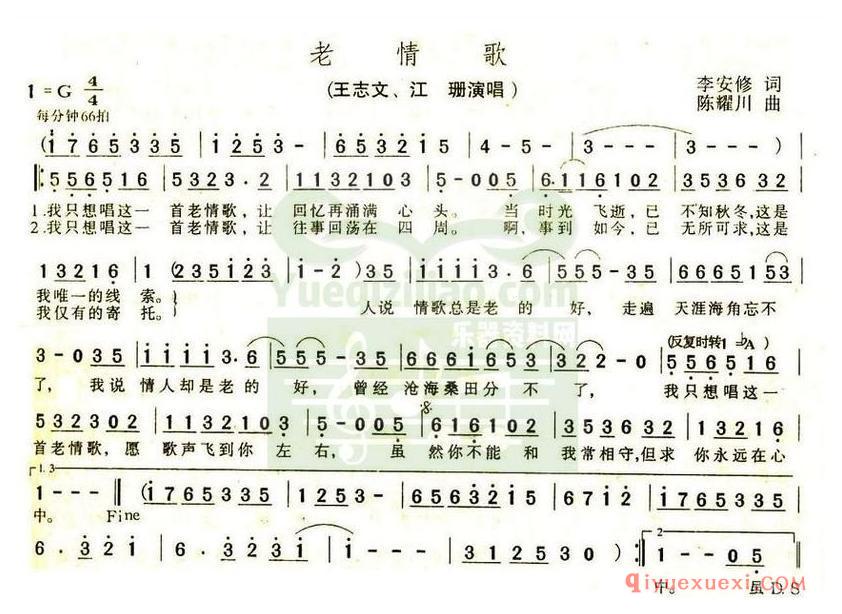 老 情 歌
1 = G 4/4
(王志文、江 珊演唱)
李安修 词
陈耀川 曲
每分钟66拍
(1 7 6 5 3 3 5 | 1 2 5 3 - | 6 5 3 2 1 5 | 4 - 5 - | 3 - - - | 3 - - - )
5 5 6 5 1 6 | 5 3 2 3 . 2 | 1 1 3 2 1 0 3 | 5 - 0 0 5 | 6 . 1 1 6 1 0 2 | 3 5 3 6 3 2
1.我只想唱这一 首老情歌,让 回忆再涌满 心 头。 当 时光 飞逝,已 不知秋冬,这是
2.我只想唱这一 首老情歌,让 往事回荡在 四 周。 啊,事到 如今,已 无所可求,这是
1 3 2 1 6 | 1 (2 3 5 1 2 3 | 1 - 2 - ) 3 5 | 1 1 1 1 3 . 6 | 5 5 5 - 3 5 | 6 6 6 5 1 5 3
我唯一的线 索。 人说 情歌总是老 的 好, 走遍 天涯海角忘不
我仅有的寄 托。
3 - 0 3 5 | 1 1 1 1 3 . 6 | 5 5 5 - 3 5 | 6 6 6 1 6 5 3 | 3 2 2 - 0 | 5 5 6 5 1 6
(反复时转1 = ♭A)
了, 我说 情人却是老 的 好, 曾经 沧海桑田分 不 了, 我只想唱这一
5 3 2 3 0 2 | 1 1 3 2 1 0 3 | 5 - 0 0 5 | 6 1 6 1 0 2 | 3 5 3 6 3 2 | 1 3 2 1 6
首老情歌,愿 歌声飞到你 左 右, 虽 然你不能 和 我常相守,但求 你永远在心
1.3
1 - - - || (1 7 6 5 3 3 5 | 1 2 5 3 - | 6 5 6 3 2 1 5 | 6 7 1 2 - | 1 7 6 5 3 3 5
中。 Fine
6 . 3 2 1 | 6 . 3 2 1 | 1 - - - | 3 0 2 0 ) :|| 2 1 - - 0 5
中。 虽 D.S
Yueqiziliao.com
乐器资料网
qinyuexuexi.com